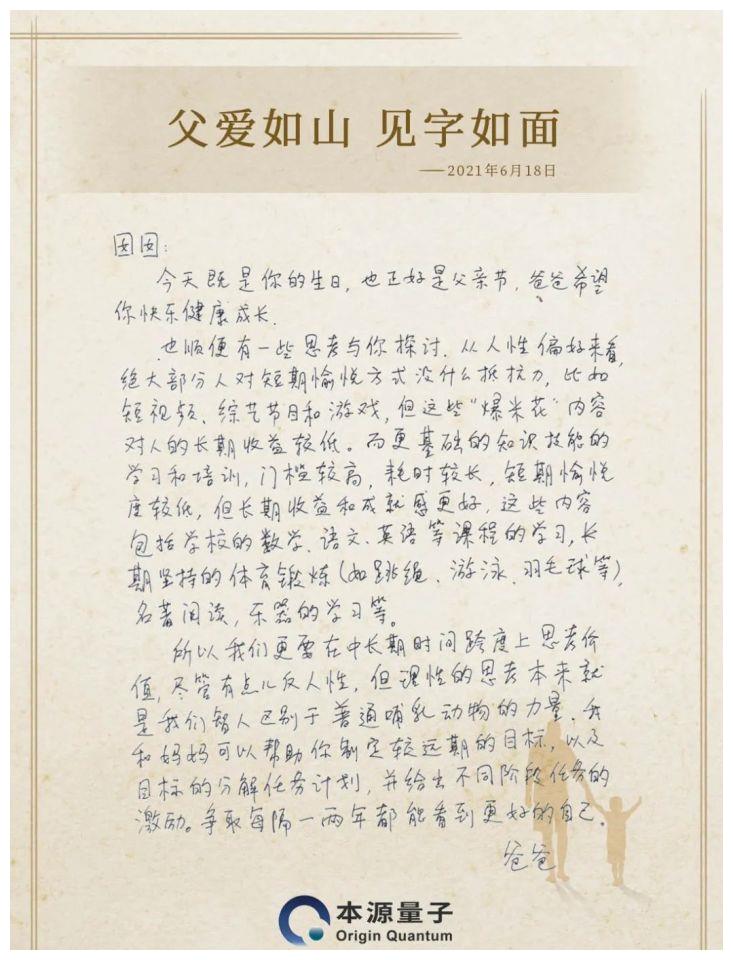 父爱如山 见字如面
——2021年6月18日
囡囡：
今天既是你的生日，也正好是父亲节，爸爸希望
你快乐健康成长.
也顺便有一些思考与你探讨. 从人性偏好来看,
绝大部分人对短期愉悦方式没什么抵抗力, 比如
短视频、综艺节目和游戏, 但这些“爆米花”内容
对人的长期收益较低。而更基础的知识技能的
学习和培训, 门槛较高, 耗时较长, 短期愉悦
度较低, 但长期收益和成就感更好. 这些内容
包括学校的数学、语文、英语等课程的学习, 长
期坚持的体育锻炼(如跳绳、游泳、羽毛球等),
名著阅读, 乐器的学习等。
所以我们更要在中长期时间跨度上思考价
值, 尽管有点儿反人性, 但理性的思考本来就
是我们智人区别于普通哺乳动物的力量. 我
和妈妈可以帮助你制定较远期的目标, 以及
目标的分解任务计划, 并给出不同阶段任务的
激励。争取每隔一两年都能看到更好的自己.
爸爸
本源量子
Origin Quantum